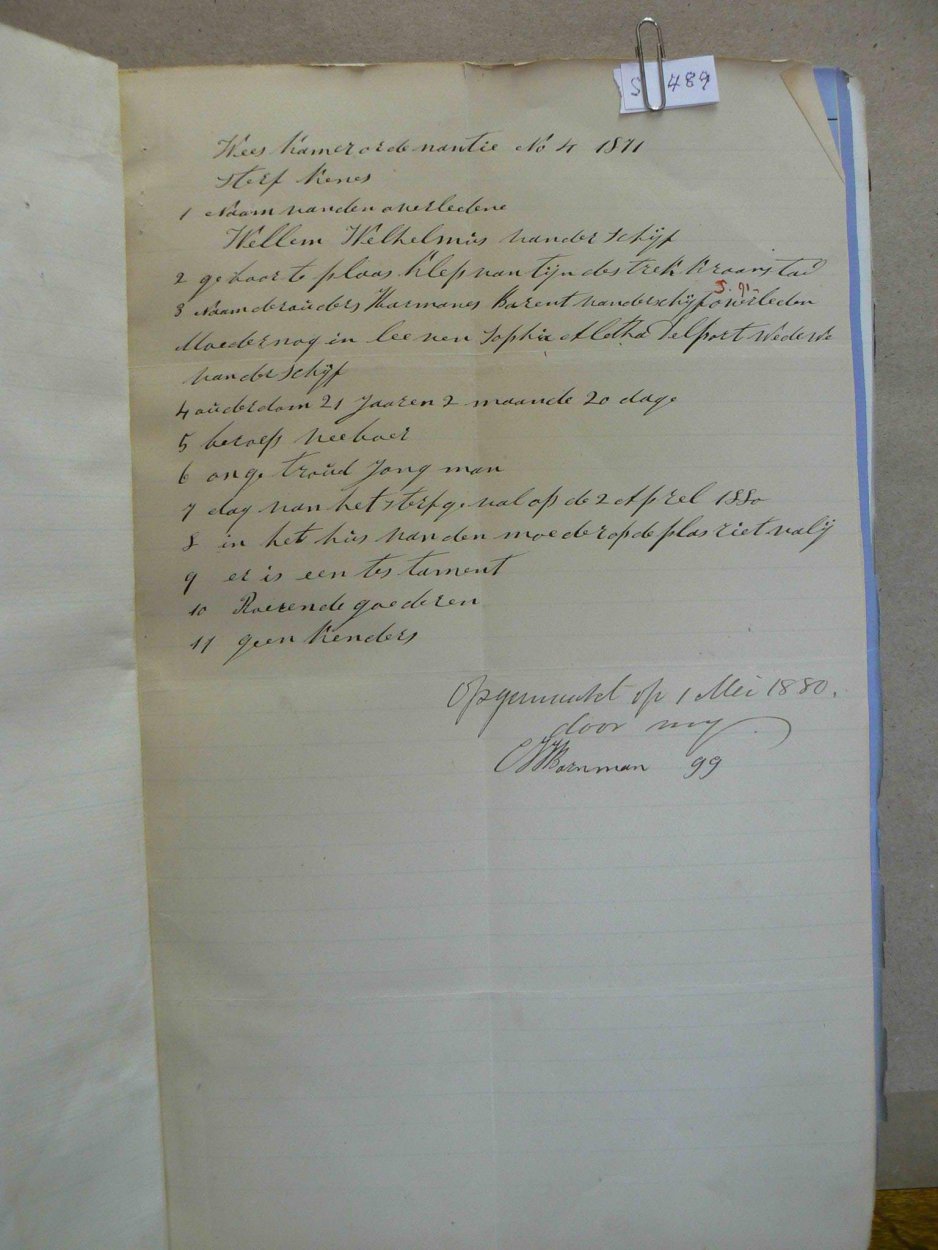 S 489
Wees kamer ordenantie No 4 1871
sterf kenes
1 Naam van den overledene
Wellem Welhelmus van der Schijf
2 geboorte plaas Klepvantijn destrek Kroanstad
3 Naam der ouders Harmanes Barent van der schijf overleden
Moeder nog in leeven Sophia Aletha Pelport wedewe
van der schijf
4 ouderdom 21 Jaaren 2 maande 20 dage
5 beroep veeboer
6 onge troud Jong man
7 dag van het sterfgeval op de 2 Aprel 1880
8 in het hus van den moeder op de plas rietvalij
9 er is een testament
10 Roerende goederen
11 geen Kenders
Opgemaakt op 1 Mei 1880.
door my
Bornman gg